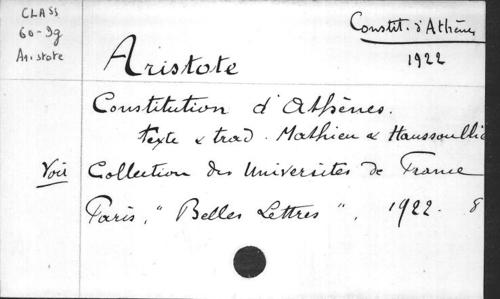 CLASS
60-9g
Aristote
Constit. d'Athènes
1922
Aristote
Constitution d'Athènes.
texte & trad. Mathieu & Haussoullie
Voir Collection des Universités de France
Paris, "Belles Lettres", 1922. 8